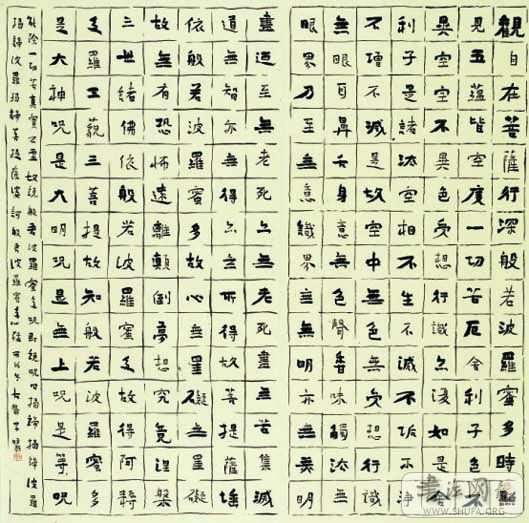 觀自在菩薩行深般若波羅蜜多時照
見五蘊皆空度一切苦厄舍利子色不
異空空不異色受想行識亦復如是舍
利子是諸法空相不生不滅不垢不淨
不增不減是故空中無色無受想行識
無眼耳鼻舌身意無色聲香味觸法無
眼界乃至無意識界無無明亦無無明
盡乃至無老死亦無老死盡無苦集滅
道無智亦無得以無所得故菩提薩埵
依般若波羅蜜多故心無罣礙無罣礙
故無有恐怖遠離顛倒夢想究竟涅槃
三世諸佛依般若波羅蜜多故得阿耨
多羅三藐三菩提故知般若波羅蜜多
是大神咒是大明咒是無上咒是等咒
能除一切苦真實不虛故說般若波羅蜜多咒即說咒曰揭諦揭諦波羅
揭諦波羅揭諦菩提薩婆訶般若波羅蜜多心經
书法网
WWW.SHUFA.ORG